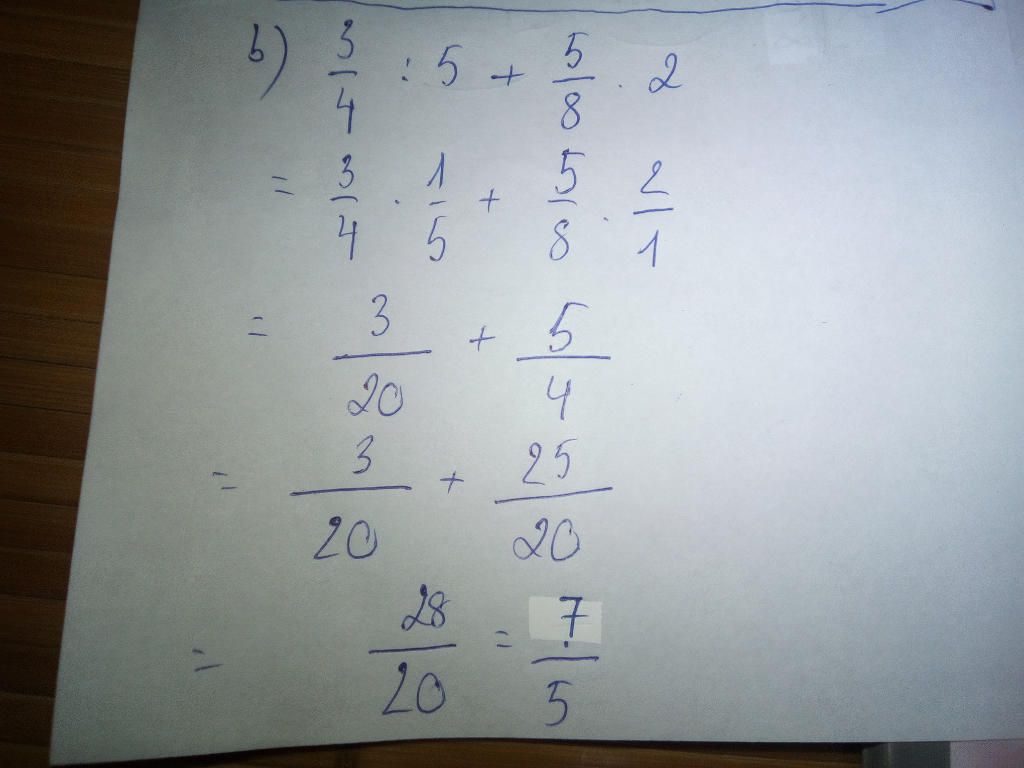 b) 3/4 : 5 + 5/8 . 2
= 3/4 . 1/5 + 5/8 . 2/1
= 3/20 + 5/4
= 3/20 + 25/20
= 28/20 = 7/5